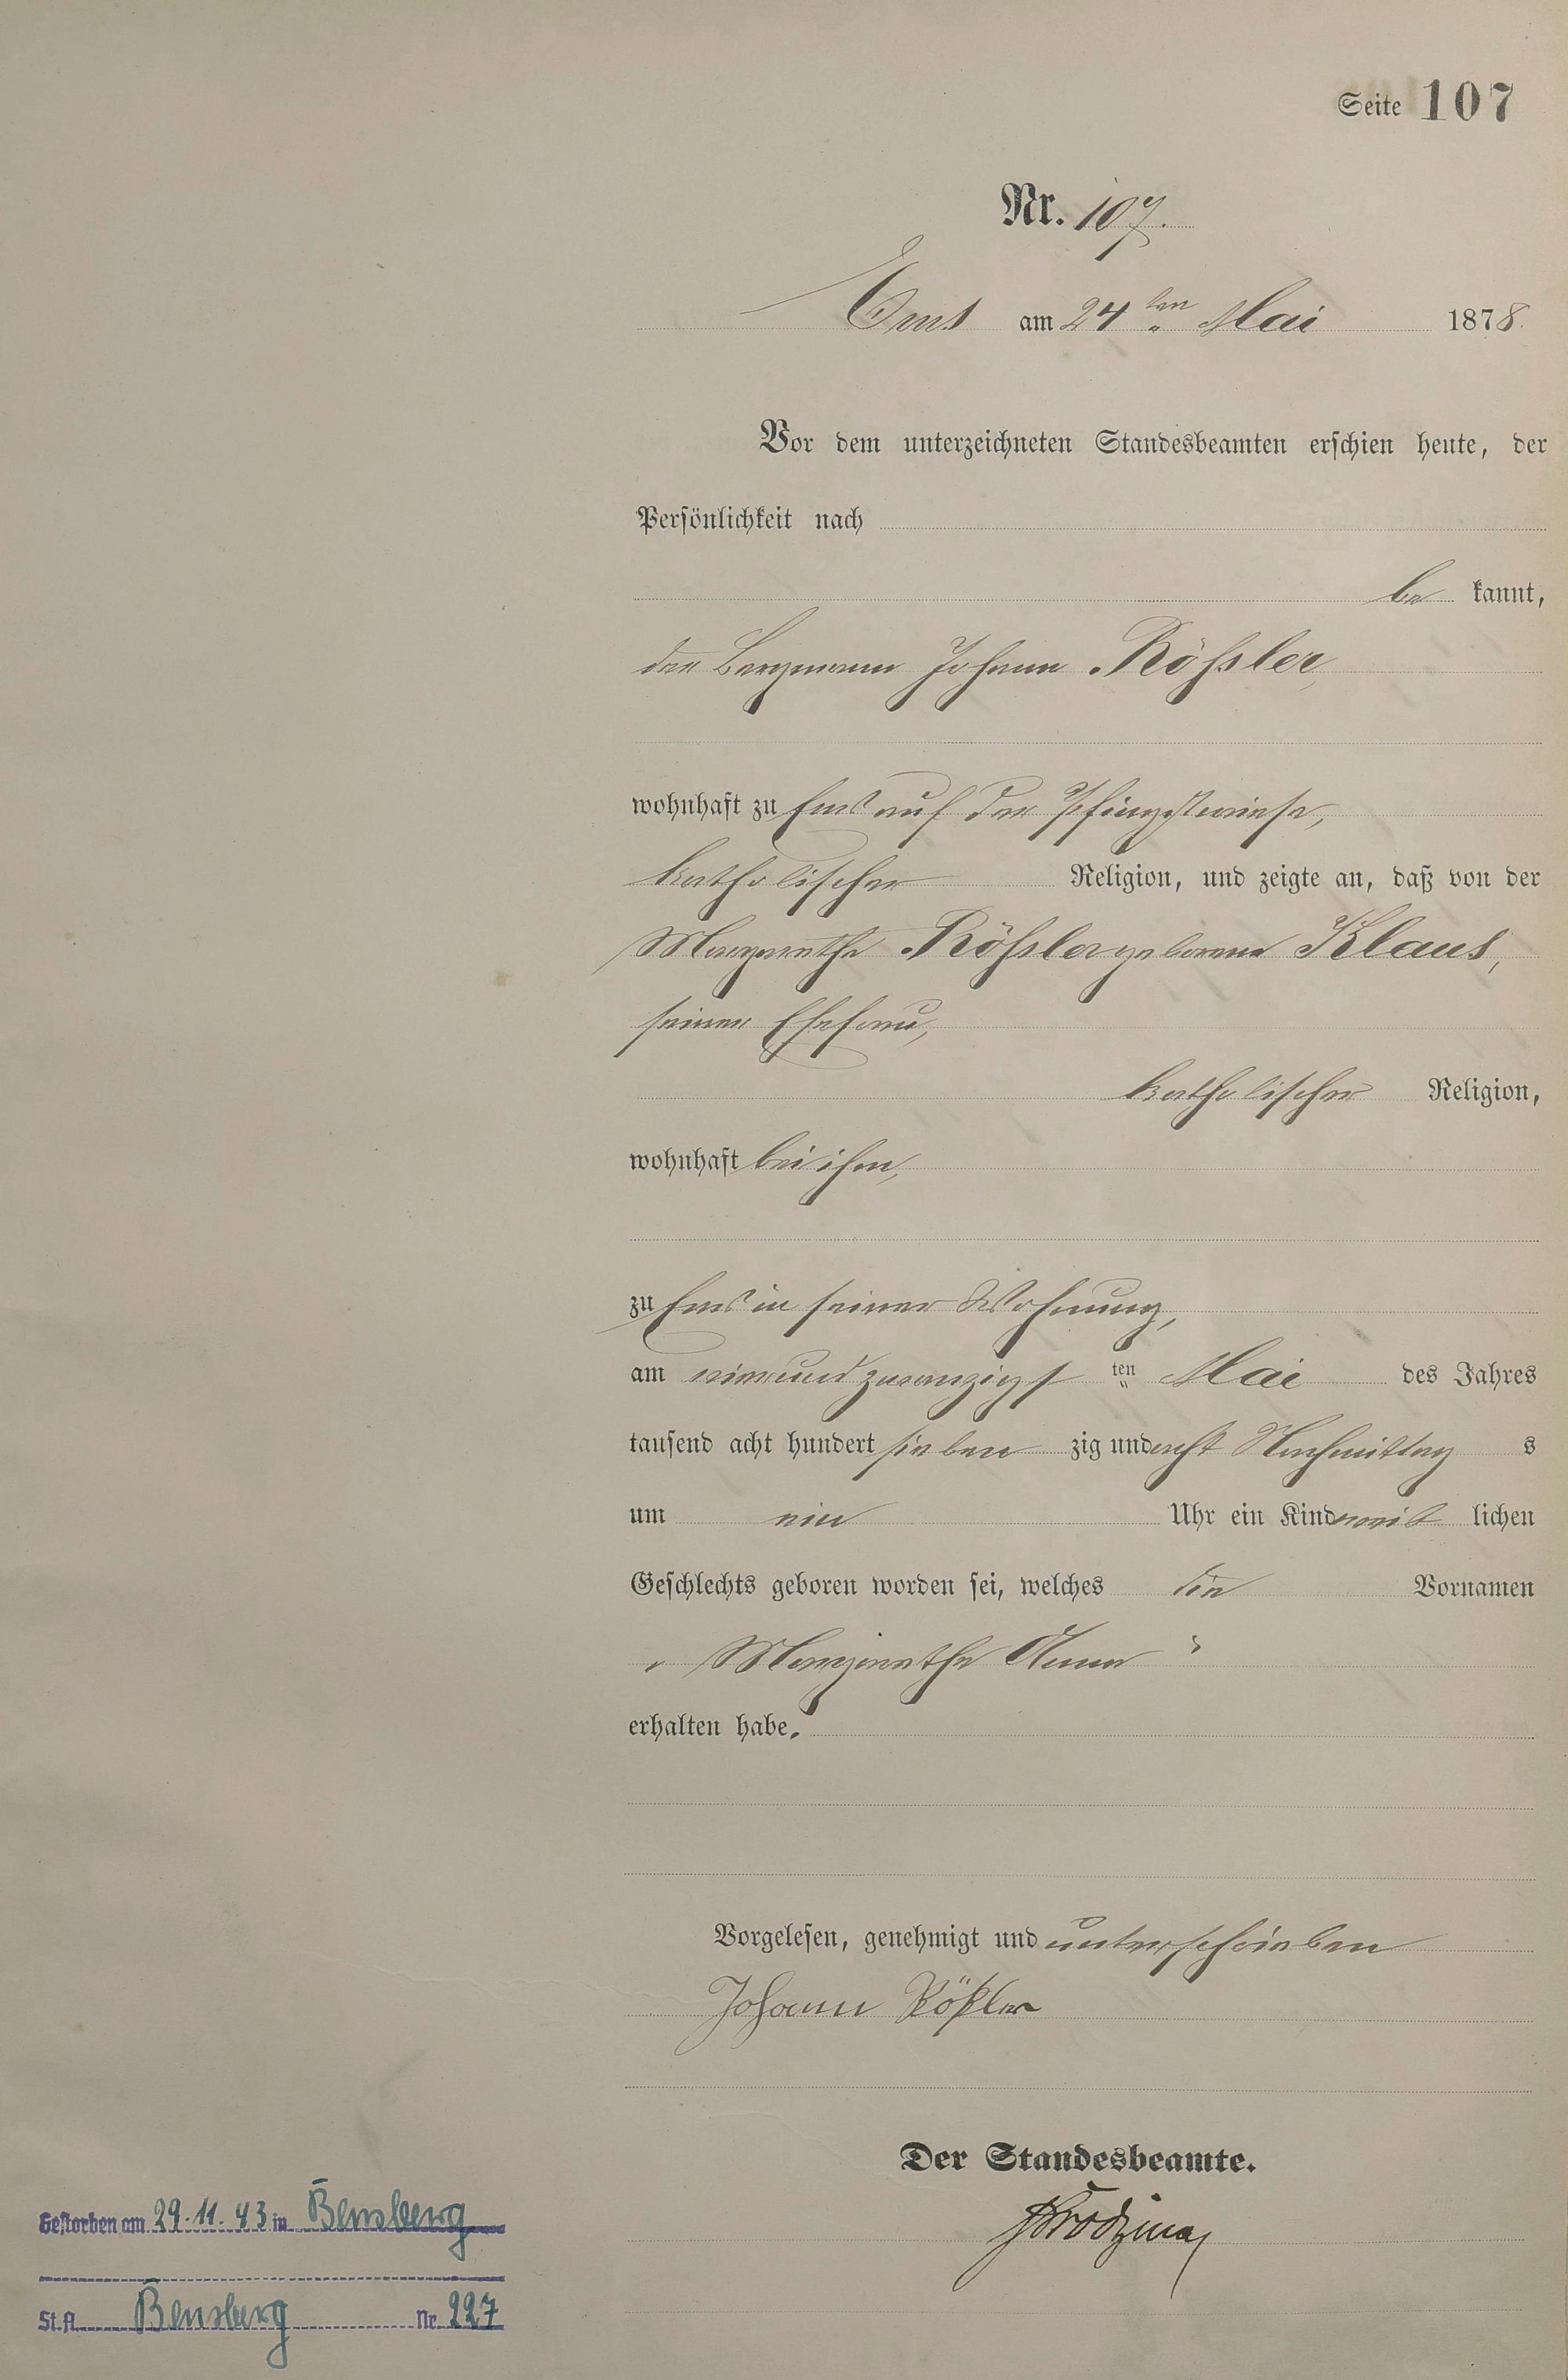 Seite 107
Nr. 107.
Ems am 24ten Mai 1878.
Vor dem unterzeichneten Standesbeamten erschien heute, der
Persönlichkeit nach
be kannt,
der Bergmann Johann Rößler,
wohnhaft zu Ems auf der Pfingstwiese,
katholischer Religion, und zeigte an, daß von der
Margarethe Rößler geborene Klaus,
seiner Ehefrau,
katholischer Religion,
wohnhaft bei ihm,
zu Ems in seiner Wohnung,
am einundzwanzigs ten Mai des Jahres
tausend acht hundert sieben zig und acht Nachmittag s
um ein Uhr ein Kind weib lichen
Geschlechts geboren worden sei, welches die Vornamen
„Margarethe Anna“
erhalten habe.
Vorgelesen, genehmigt und unterschrieben
Johann Rößler
Der Standesbeamte.
Gestorben am 29.11.43 in Bensberg
St.A. Bensberg Nr. 227